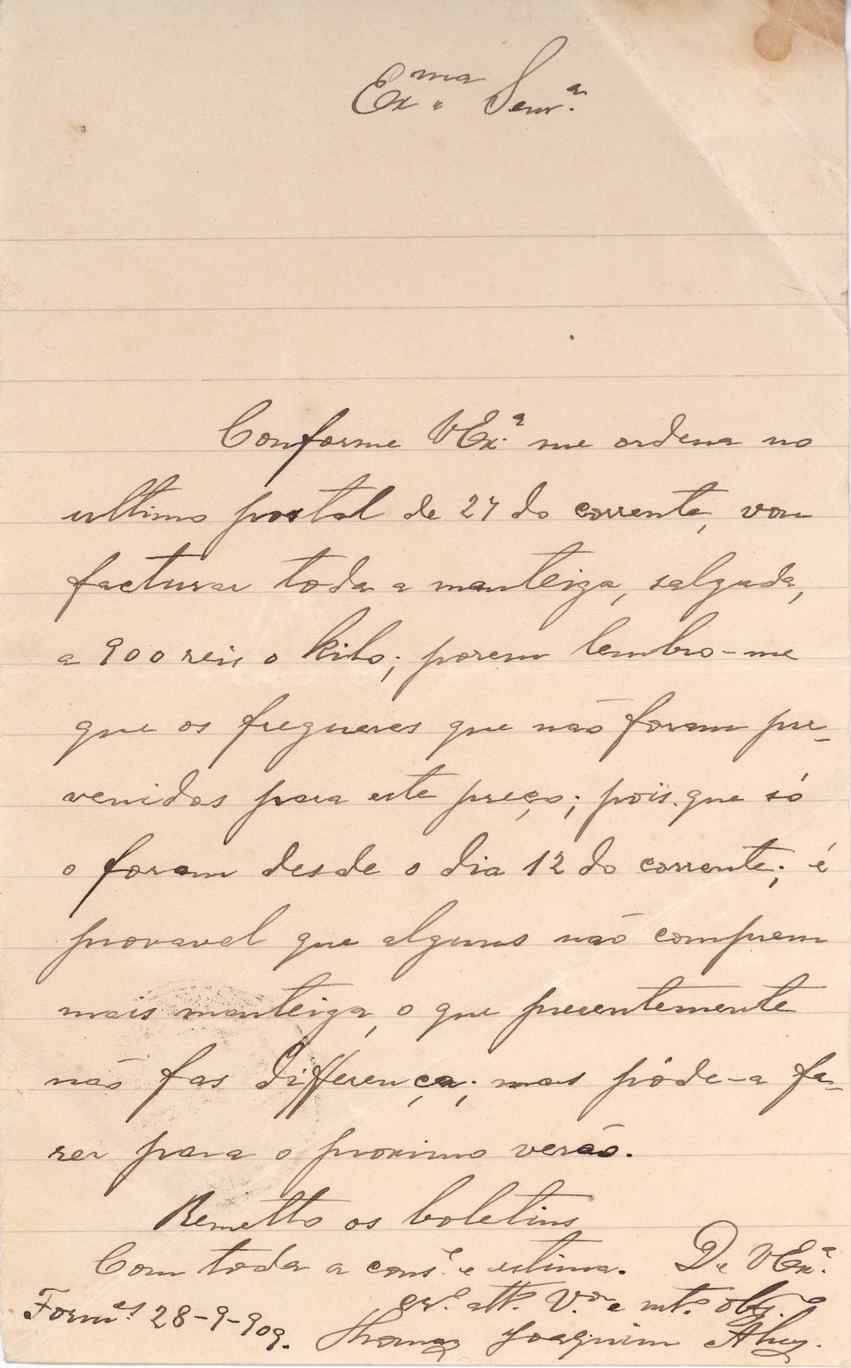 Exma Senra
Conforme V Exa me ordena no
ultimo postal de 27 do corrente, vou
facturar toda a manteiga, salgada,
a 900 reis o kilo; porem lembro-me
que os freguezes que não foram pre-
venidos para este preço; pois que só
o foram desde o dia 12 do corrente; é
provavel que alguns não comprem
mais manteiga, o que presentemente
não fas differença; mas póde-a fa-
zer para o proximo verão.
Remetto os boletins
Com toda a cons.e e estima. De V Exa.
cro. atto. V.or e mto. obgo.
Form.es 28-9-909.
Thomaz Joaquim